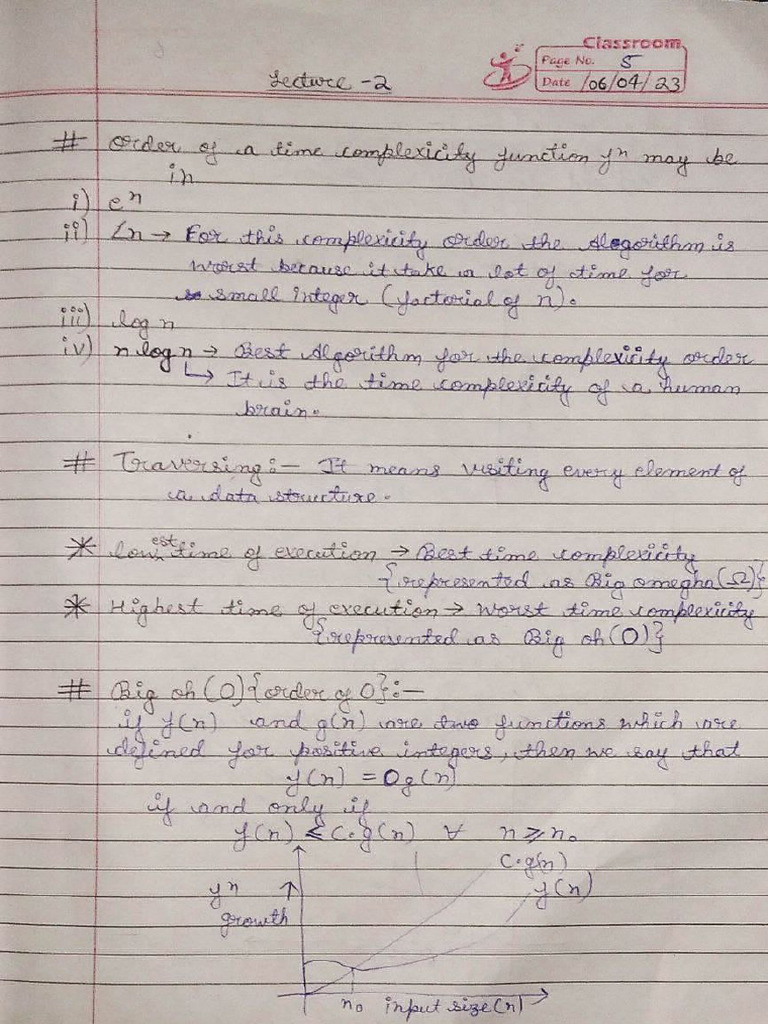 Classroom
Page No. 5
Lecture -2
Date /06/04/23
# Order of a time complexicity function fⁿ may be
in
i) eⁿ
ii) ∠n → For this complexicity order the Alogorithm is
worst because it take a lot of time for
small integer (factorial of n).
iii) log n
iv) n log n → Best Algorithm for the complexicity order
↳ It is the time complexicity of a human
brain.
# Traversing :- It means visiting every element of
a data structure.
* lowest time of execution → Best time complexicity
{represented as Big omegha(Ω)}
* Highest time of execution → Worst time complexicity
{represented as Big oh(O)}
# Big oh (O) {order of O} :-
if f(n) and g(n) are two functions which are
defined for positive integers, then we say that
f(n) = Og(n)
if and only if
f(n) ≤ C·g(n) ∀ n ≥ n₀
C·g(n)
fⁿ ↑ f(n)
growth
n₀ input size(n)